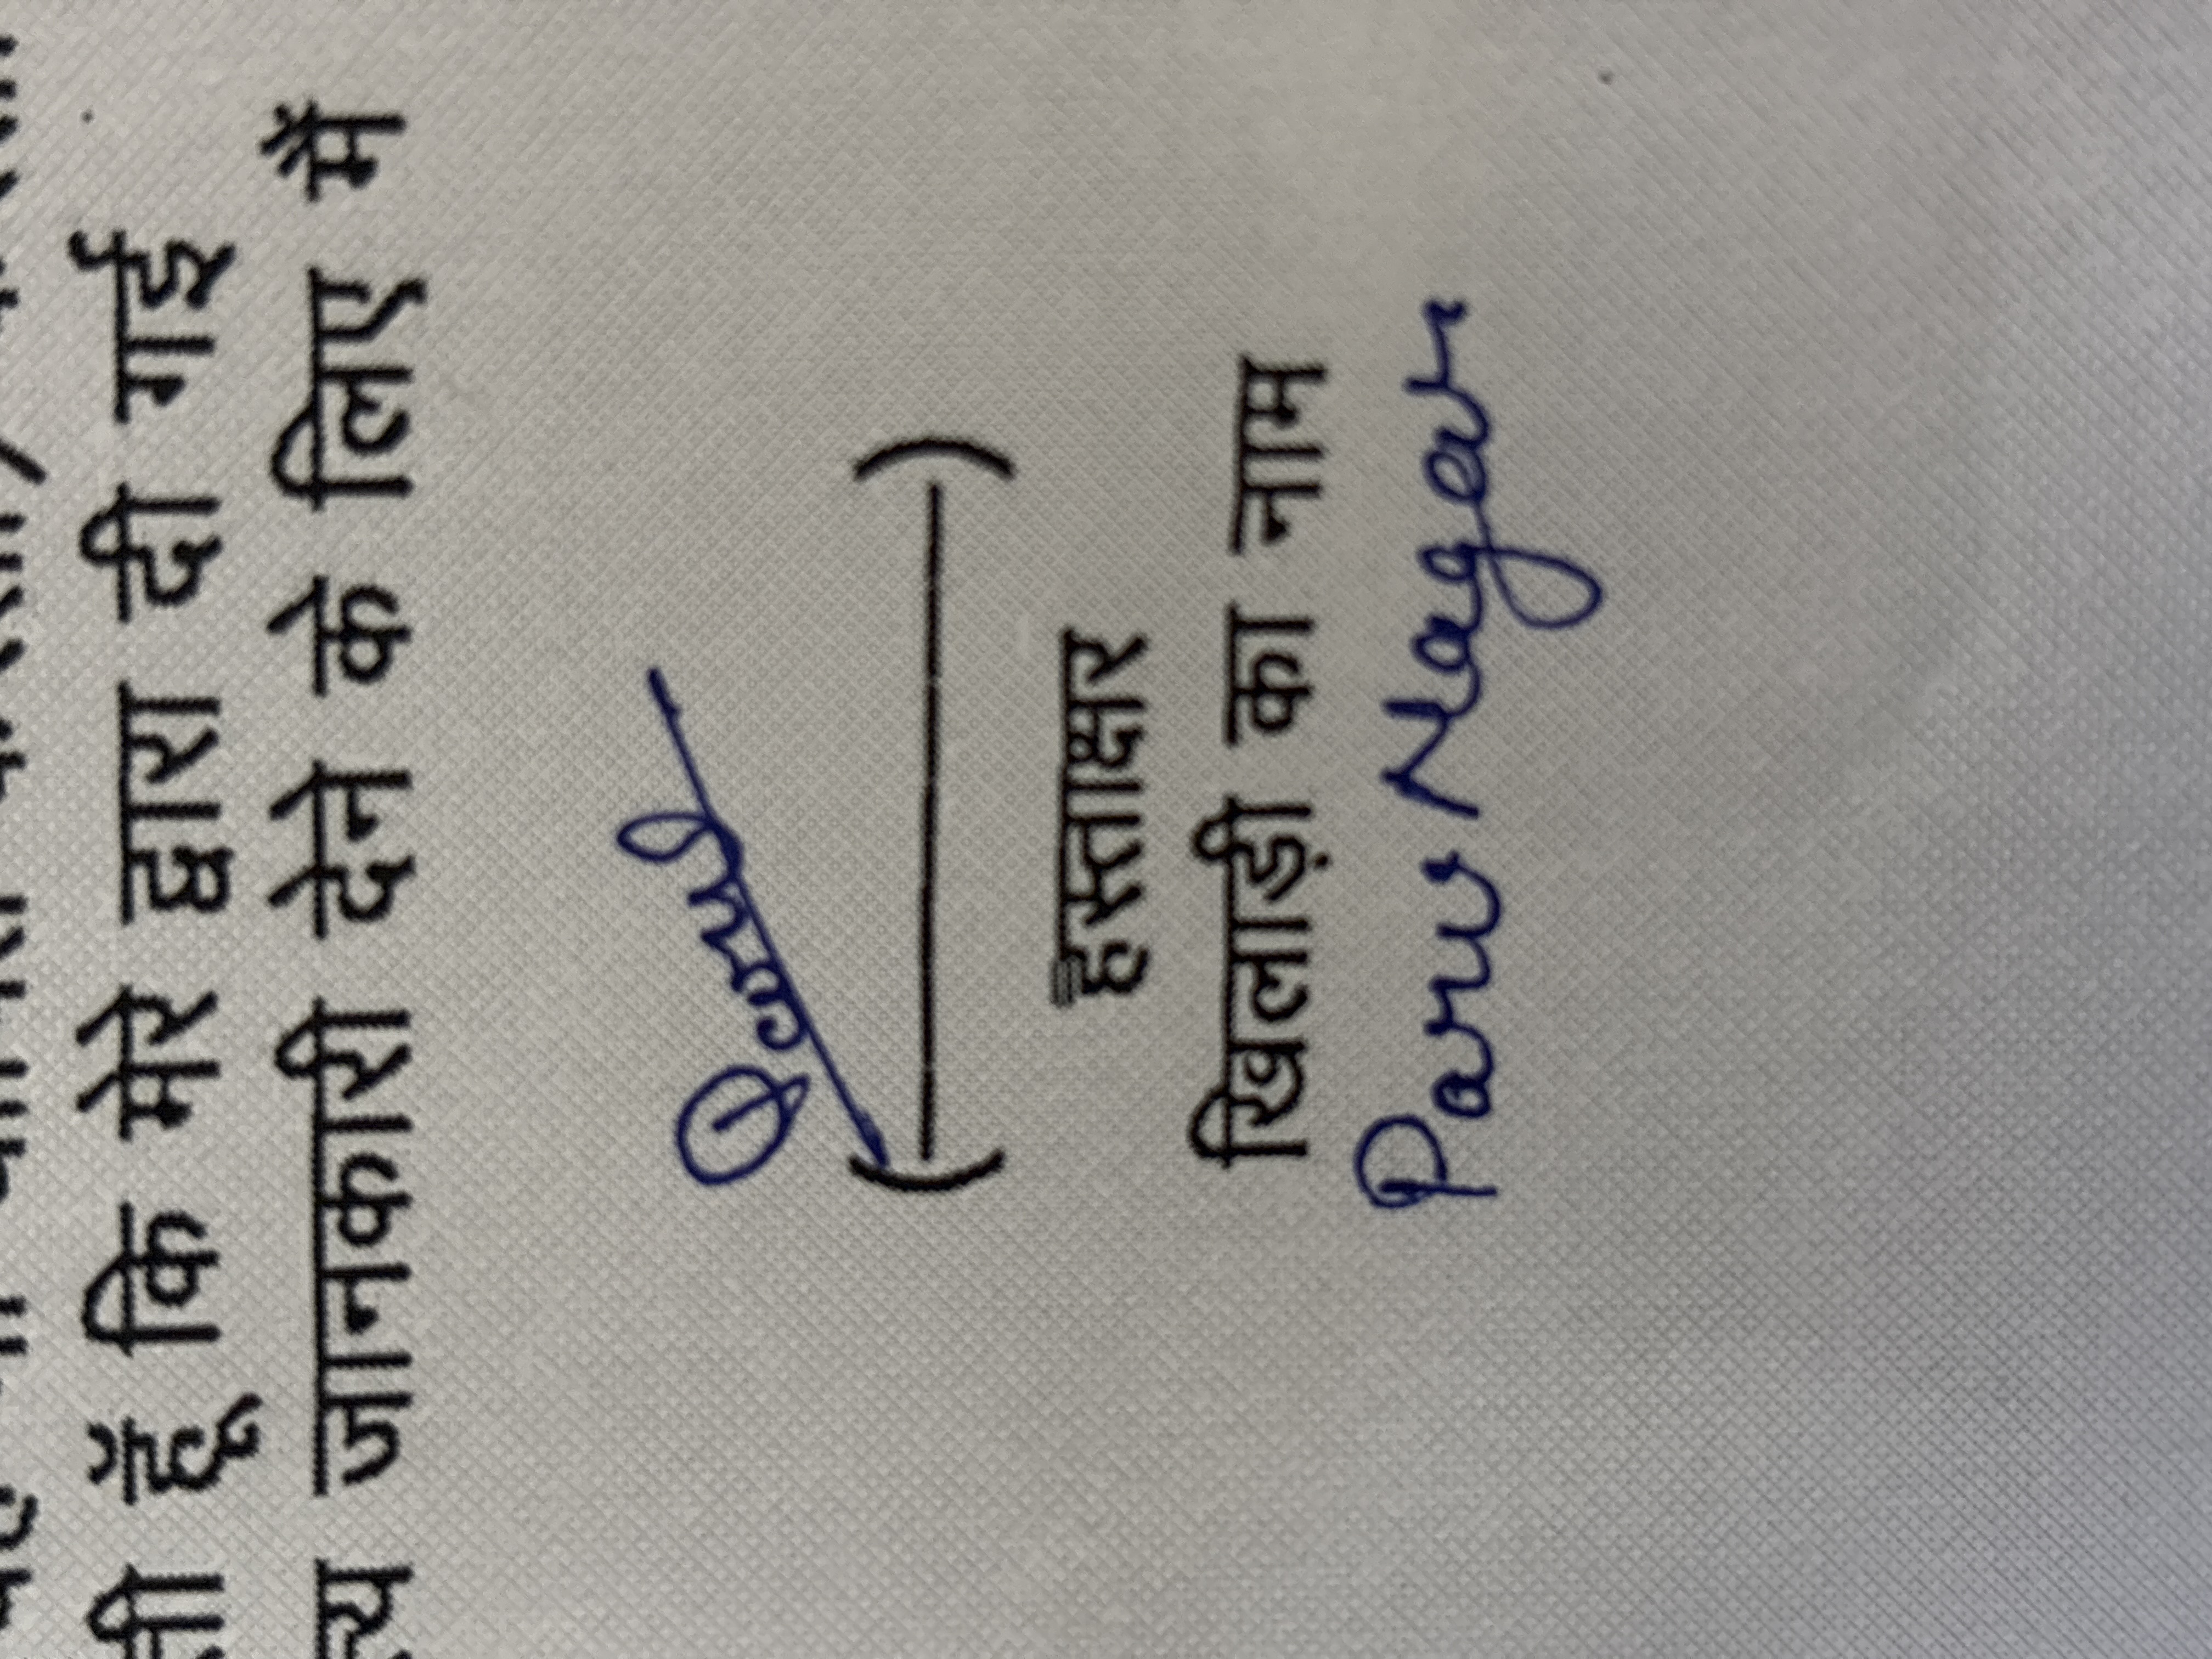 हूँ कि मेरे द्वारा दी गई
जानकारी देने के लिए में
हस्ताक्षर
खिलाड़ी का नाम
Paru Nagar